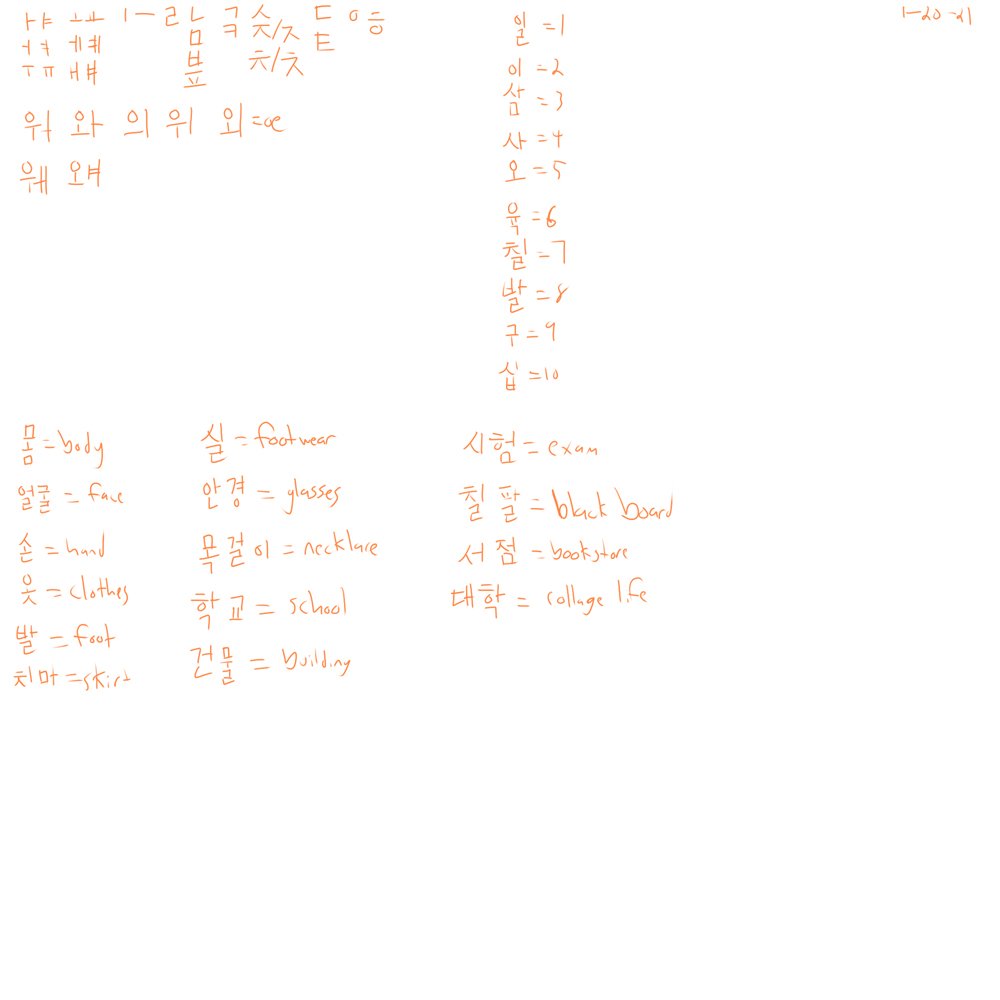 1-20-21
ㅏㅑ ㅗㅛ ㅣㅡ ㄹ
ㅓㅕ ㅔㅖ
ㅜㅠ ㅐㅒ
워 와 의 위 외=oe
웨 왜
일=1
이=2
삼=3
사=4
오=5
육=6
칠=7
발=8
구=9
십=10
몸=body
얼굴=face
손=hand
옷=clothes
발=foot
치마=skirt
실=footwear
안경=glasses
목걸이=necklace
학교=school
건물=building
시험=exam
칠팔=black board
서점=bookstore
대학=collage life